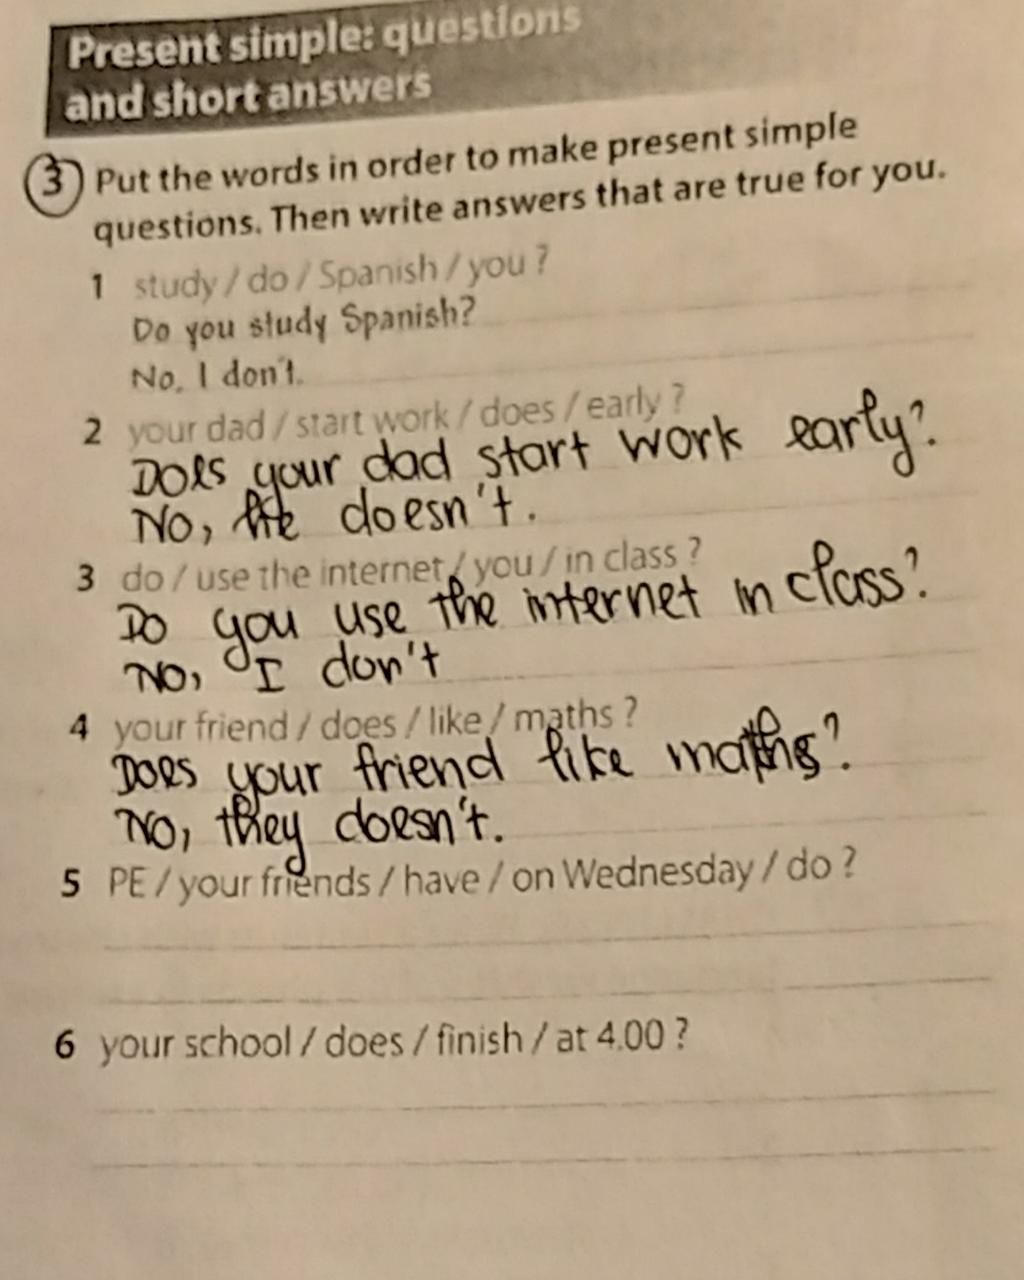 Present simple: questions
and short answers
3 Put the words in order to make present simple
questions. Then write answers that are true for you.
1 study / do / Spanish / you ?
Do you study Spanish?
No, I don't.
2 your dad / start work / does / early ?
Does your dad start work early?
No, he doesn't.
3 do / use the internet / you / in class ?
Do you use the internet in class?
No, I don't
4 your friend / does / like / maths ?
Does your friend like maths?
No, they doesn't.
5 PE / your friends / have / on Wednesday / do ?
6 your school / does / finish / at 4.00 ?